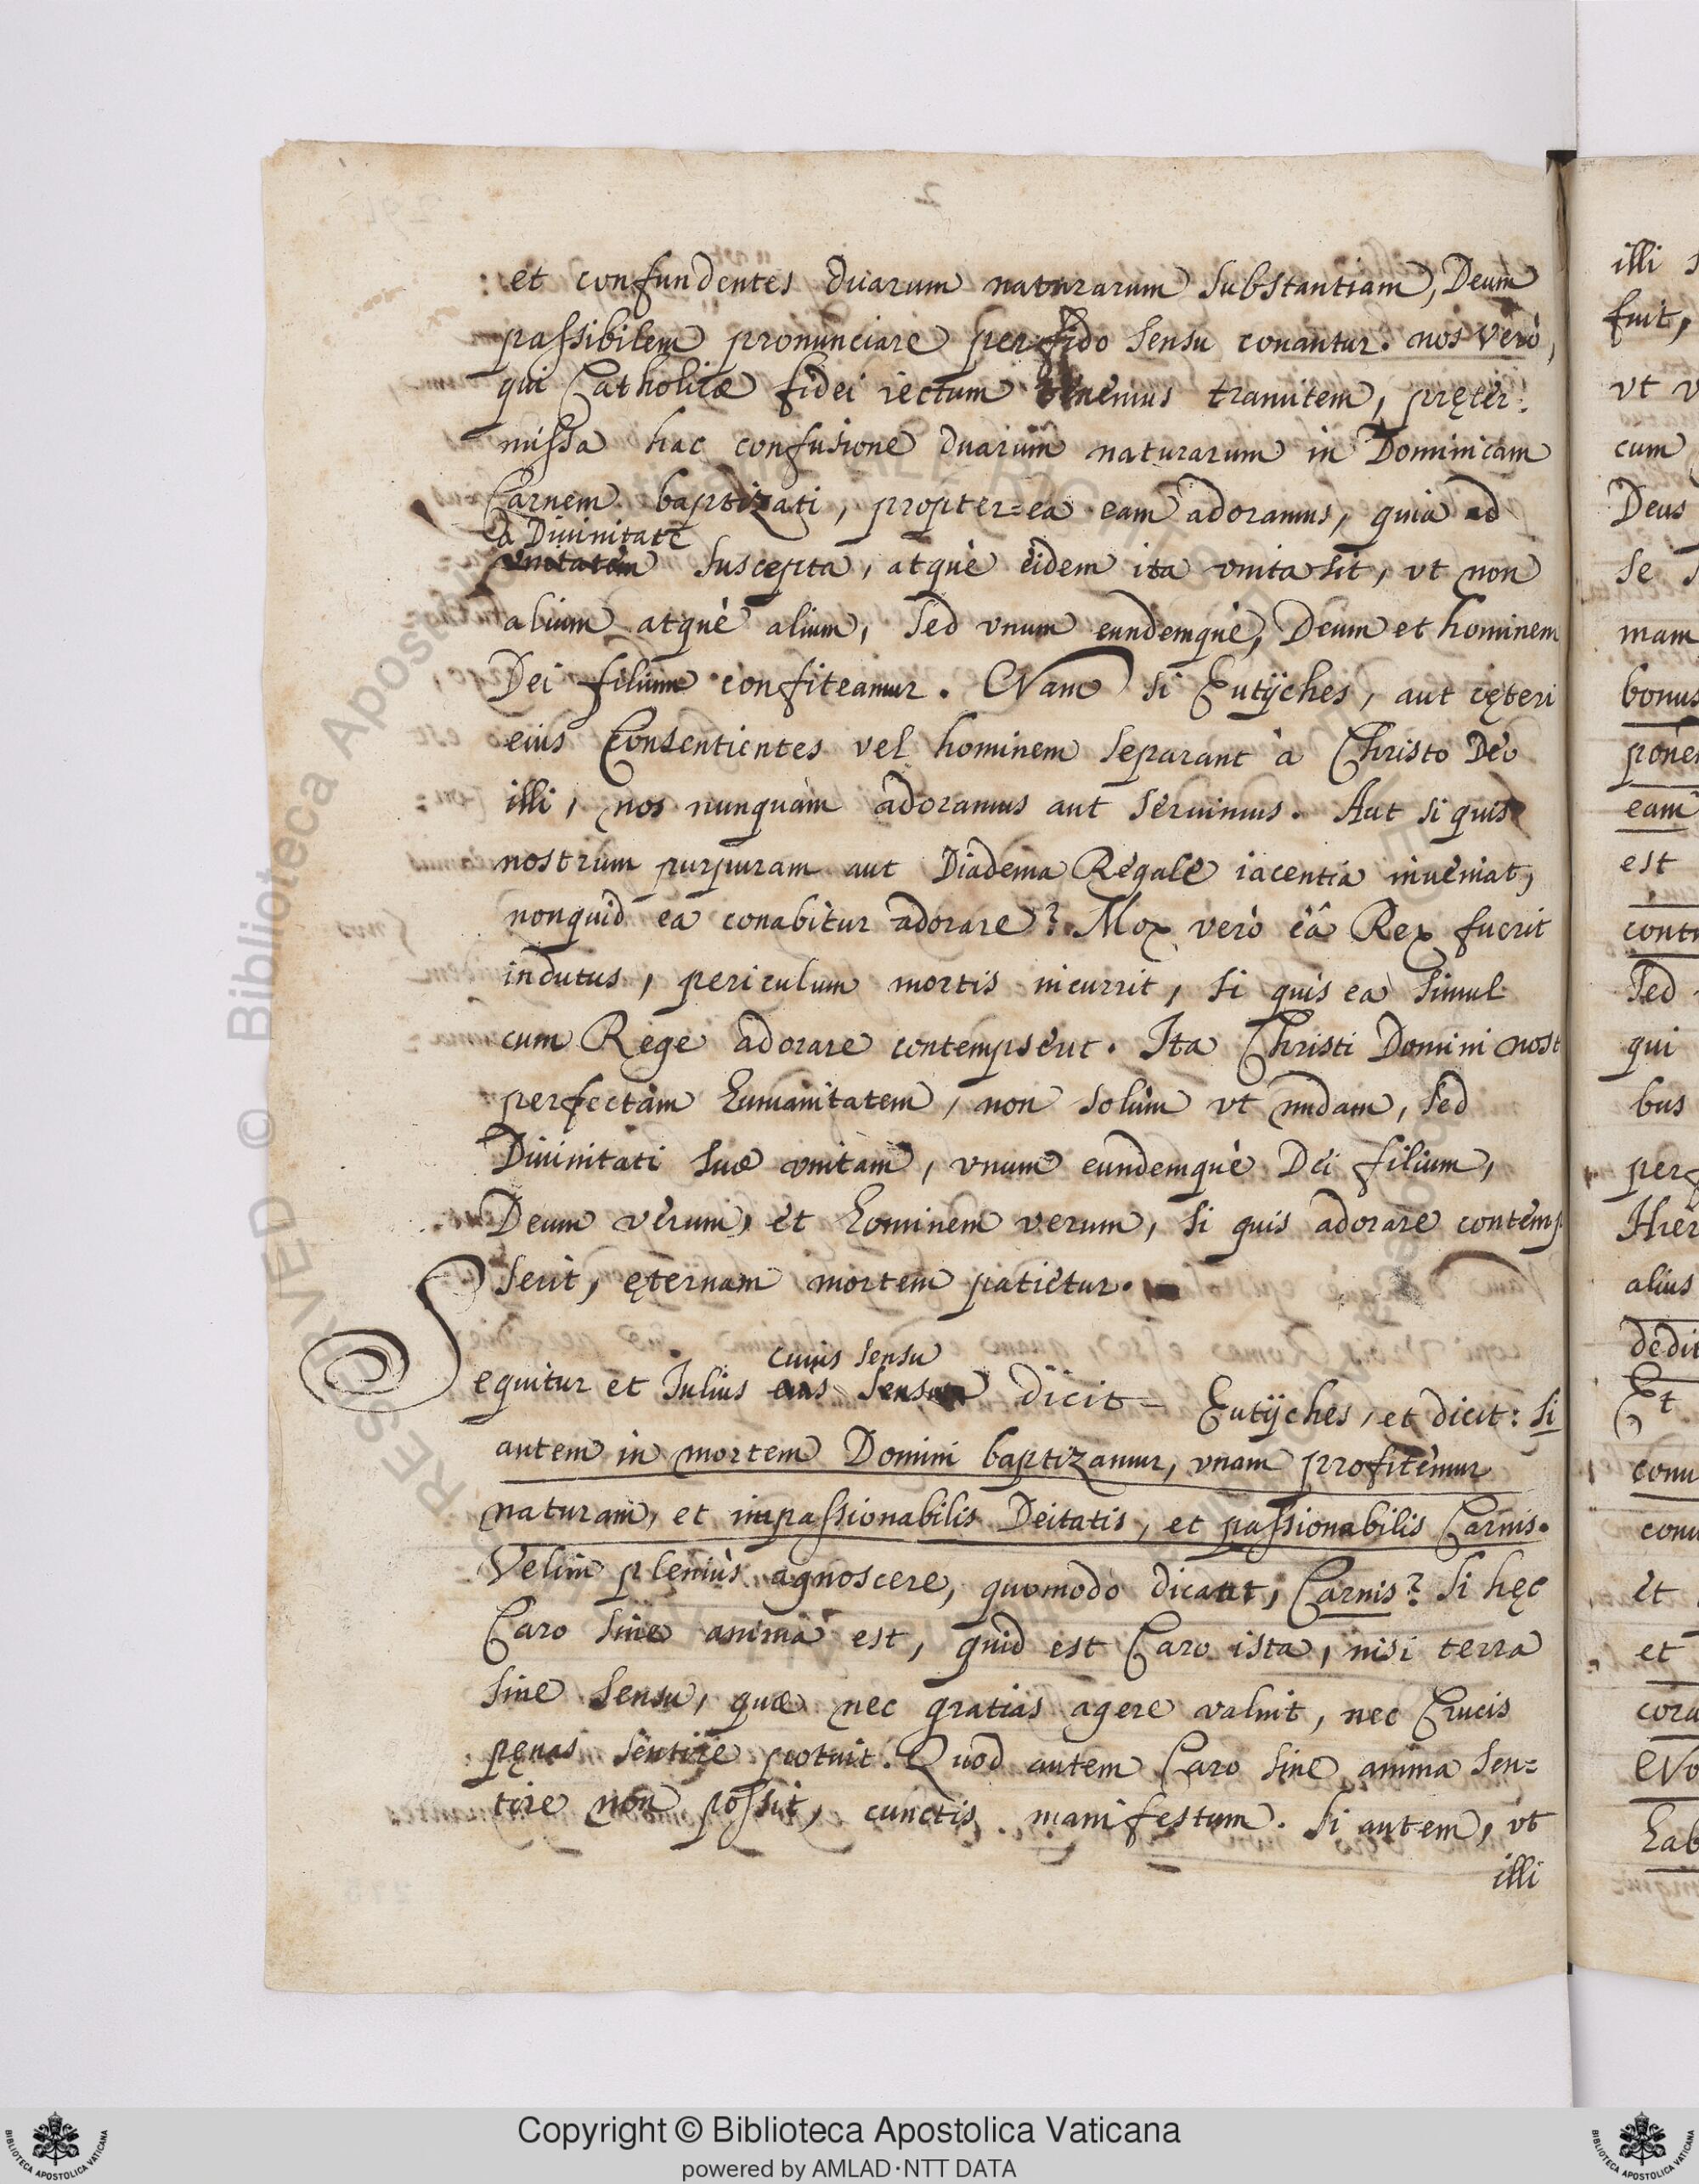 2
et confundentes duarum naturarum substantiam, Deum
passibilem pronunciare perfido sensu conantur. nos verò,
qui Catholicæ fidei rectum tenemus tramitem, pręter:
missa hac confusione duarum naturarum in Dominicam
Carnem baptizati, propter=ea eam adoramus, quia ad
à Diuinitate
vnitatem suscepta, atquè eidem ita vnita sit, vt non
alium atquè alium, sed vnum eundemquè, Deum et hominem
Dei filium confiteamur. Nam si Eutÿches, aut cęteri
eius Consentientes vel hominem separant à Christo Deo
illi, nos nunquàm adoramus aut seruimus. Aut si quis
nostrum purpuram aut Diadema Regale iacentia inueniat,
nonquid ea conabitur adorare? Mox verò eâ Rex fuerit
indutus, periculum mortis incurrit, si quis ea simul
cum Rege adorare contempserit. Ita Christi Domini nost
perfectam humanitatem, non solùm vt nudam, sed
Diuinitati suæ vnitam, vnum eundemquè Dei filium,
Deum verum, et hominem verum, si quis adorare contemp
serit, ęternam mortem patietur.
cuius sensu
Sequitur et Iulius eius sensum dicit Eutÿches, et dicit: si
autem in mortem Domini baptizamur, vnam profitemur
naturam, et impassionabilis Deitatis, et passionabilis Carnis.
Velim pleniùs agnoscere, quomodo dicant, Carnis? Si hęc
Caro sine anima est, quid est Caro ista, nisi terra
sine sensu, quæ nec gratias agere valuit, nec Crucis
pęnas sentire potuit. Quod autem Caro sine anima sen=
tire non possit, cunctis manifestum. Si autem, vt
illi
illi s
fuit,
vt v
cum
Deus
se s
mam
bonus
ponen
eam
est
contr
sed
qui
bus
perf
Hier
alius
dedit
Et
conu
conu
et
et
cora
Hab
© Biblioteca Apostolica
RESERVED
Copyright © Biblioteca Apostolica Vaticana
powered by AMLAD·NTT DATA
BIBLIOTECA APOSTOLICA VATICANA
BIBLIOTECA APOSTOLICA VATICANA